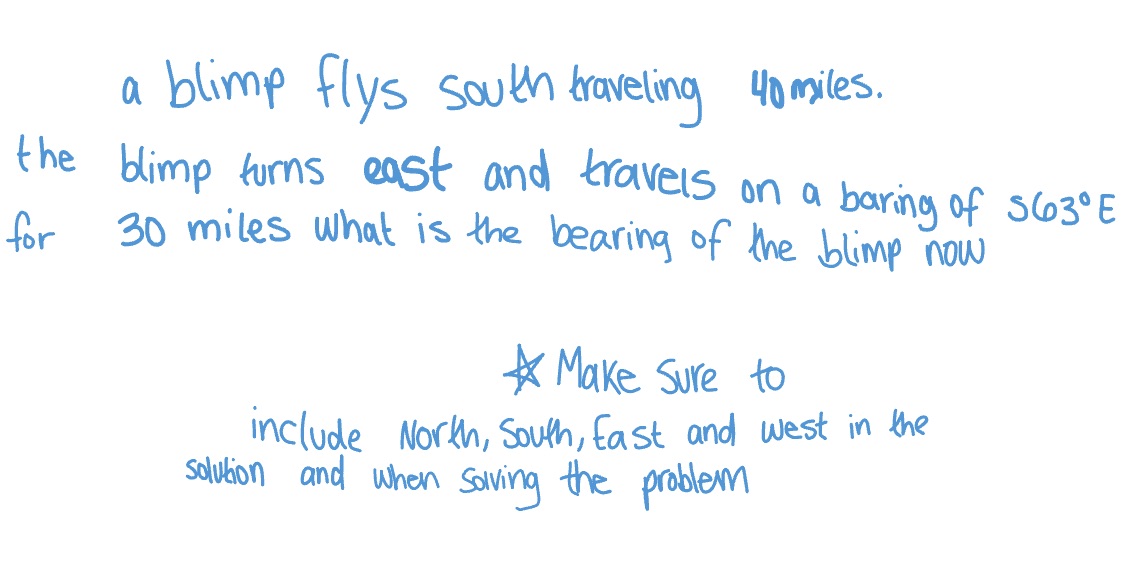 a blimp flys south traveling 40 miles.
the blimp turns east and travels on a baring of S63°E
for 30 miles what is the bearing of the blimp now
☆ Make sure to
include North, South, East and west in the
solution and when solving the problem